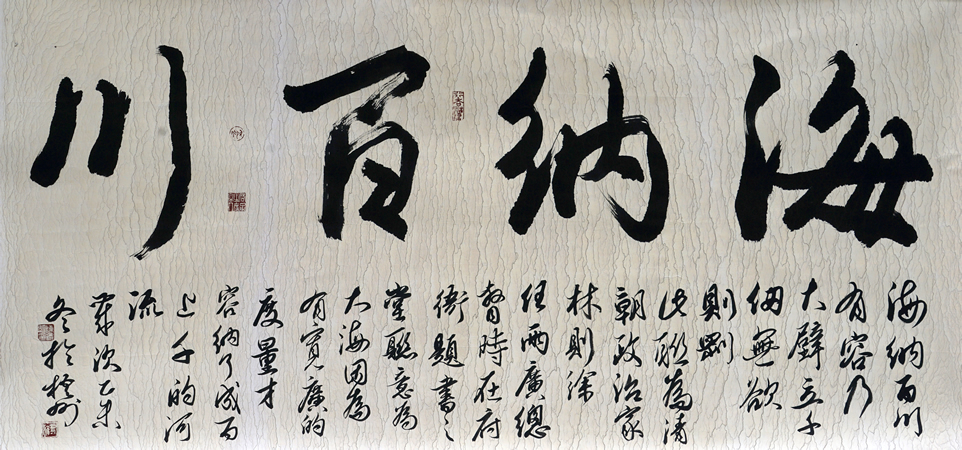 海纳百川
海纳百川
有容乃
大壁立千
仞無欲
則剛
此联為清
朝政治家
林則徐
任兩廣總
督時在府
衙題書之
堂聯意為
大海因為
有寬廣的
度量才
容纳了成百
上千的河
流
歲次乙未
冬於